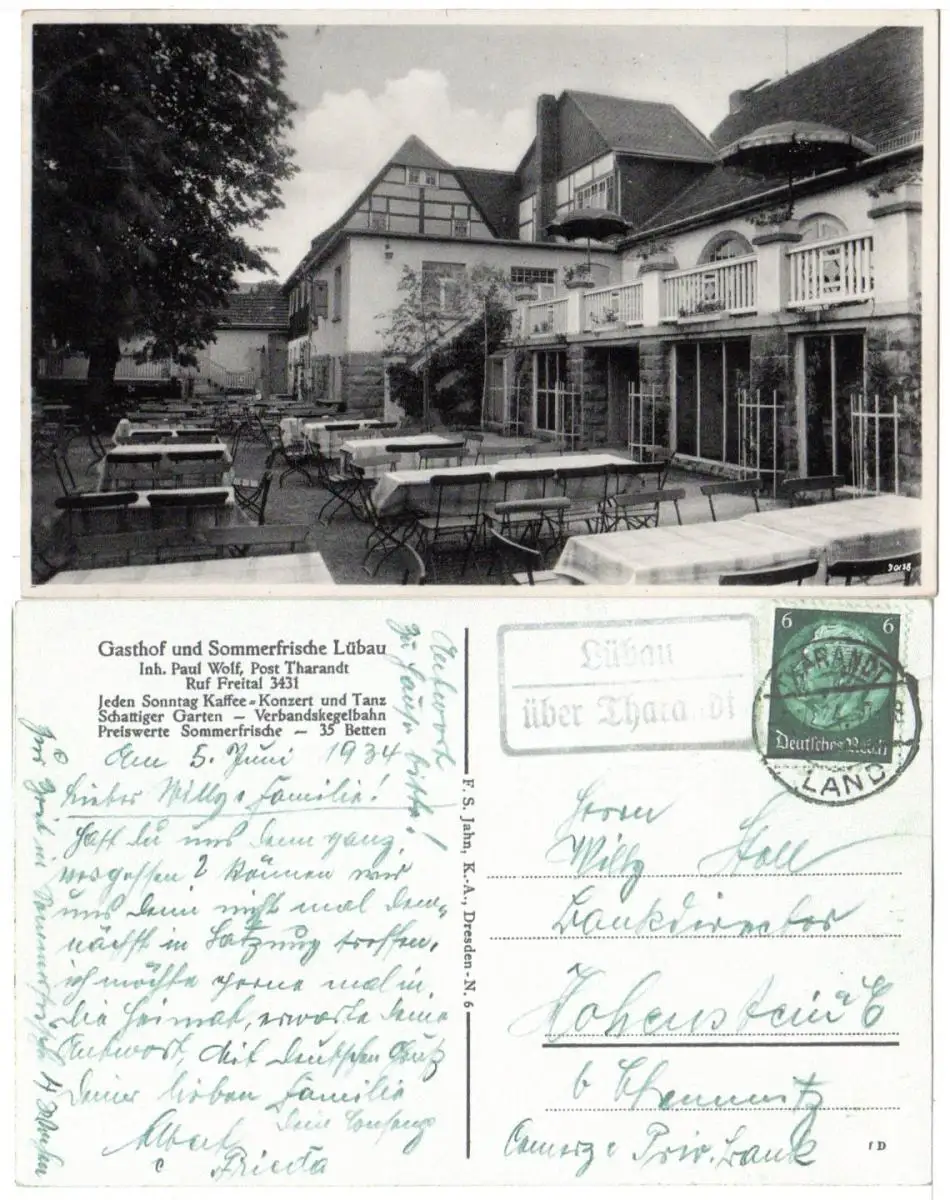 30128
Gasthof und Sommerfrische Lübau
Inh. Paul Wolf, Post Tharandt
Ruf Freital 3431
Jeden Sonntag Kaffee-Konzert und Tanz
Schattiger Garten — Verbandskegelbahn
Preiswerte Sommerfrische — 35 Betten
Am 5. Juni 1934
Lieber Willy & Familie!
Hast Du uns denn ganz
vergessen? Können wir
uns denn nicht mal dem-
nächst in treffen,
ich möchte gerne mal in
die Heimat, erwarte Deine
Antwort, Mit Deutschen Gruß
Deiner lieben Familie
Dein
Albert
& Frieda
Antwort
zu Hause bitte!
zur Zeit in Sommerfrische 4 Wochen
F. S. Jahn, K.-A., Dresden-N. 6
Lübau
über Tharandt
6 6
Deutsches Reich
THARANDT
LAND
Herrn
Willy Stoll
Bankdirector
Hohenstein E
b Chemnitz
Comerz & Priv. Bank
f D